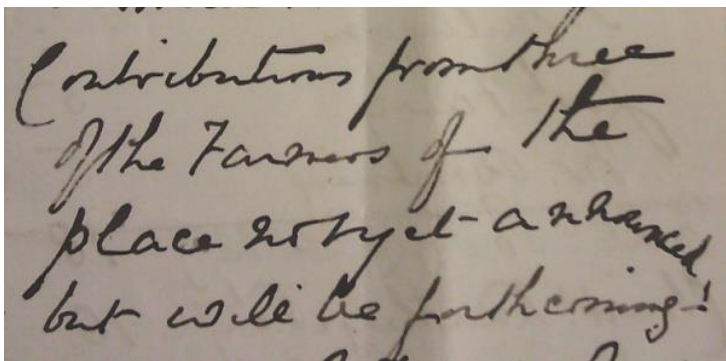 Contributions from three
of the Farmers of the
place not yet announced,
but will be forthcoming!